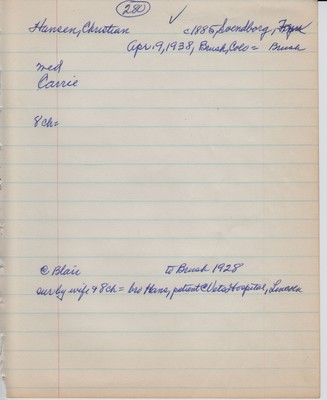 280 ✓
Hansen, Christian c1885, Svendborg, Fyn
Apr. 9, 1938, Brush, Colo = Brush
med
Carrie
8ch=
@ Blair to Brush 1928
sur by wife + 8ch = bro Hans, patient @ Vets Hospital, Lincoln